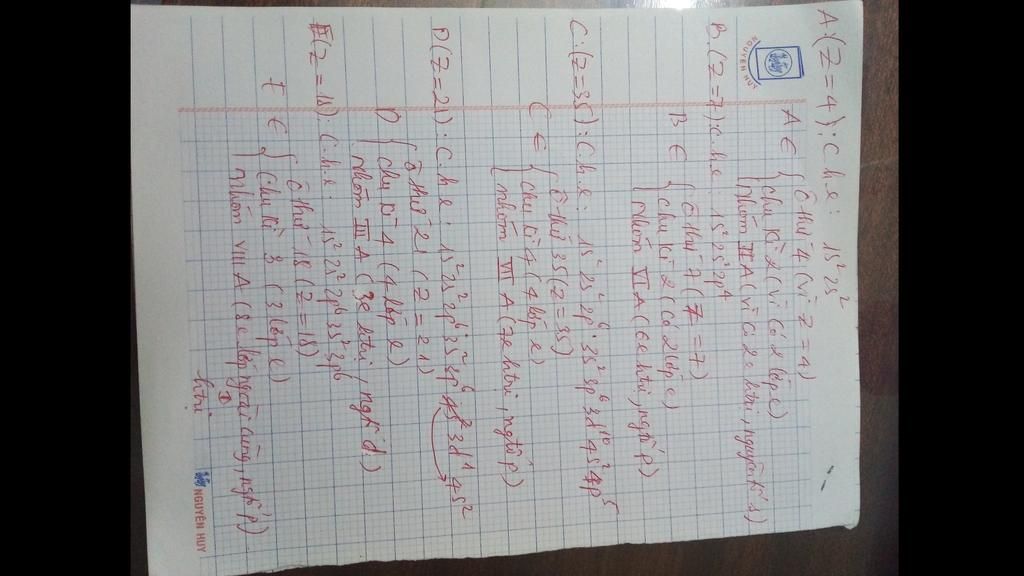 A: (Z=4): C.h.e: 1s² 2s²
A ∈ { ô thứ 4 (vì Z=4)
chu kì 2 (vì có 2 lớp e)
nhóm II A (vì có 2e htrị, nguyên tố s)
NGUYEN HUY
B: (Z=7): C.h.e: 1s² 2s² 2p⁴
B ∈ { ô thứ 7 (Z=7)
chu kì 2 (có 2 lớp e)
nhóm VI A (6e htrị, ngtố p)
C: (Z=35): C.h.e: 1s² 2s² 2p⁶ 3s² 3p⁶ 3d¹⁰ 4s² 4p⁵
C ∈ { ô thứ 35 (Z=35)
chu kì 4 (4 lớp e)
nhóm VI A (7e htrị, ngtố p)
D (Z=21): C.h.e: 1s² 2s² 2p⁶ 3s² 3p⁶ 4s² 3d¹ 4s²
D { ô thứ 21 (Z=21)
chu kì 4 (4 lớp e)
nhóm III A (3e htrị, ngtố d)
(Z=18): C.h.e: 1s² 2s² 2p⁶ 3s² 3p⁶
E ∈ { ô thứ 18 (Z=18)
chu kì 3 (3 lớp e)
nhóm VIII A (8e lớp ngoài cùng, ngtố p)
htrị
NGUYEN HUY